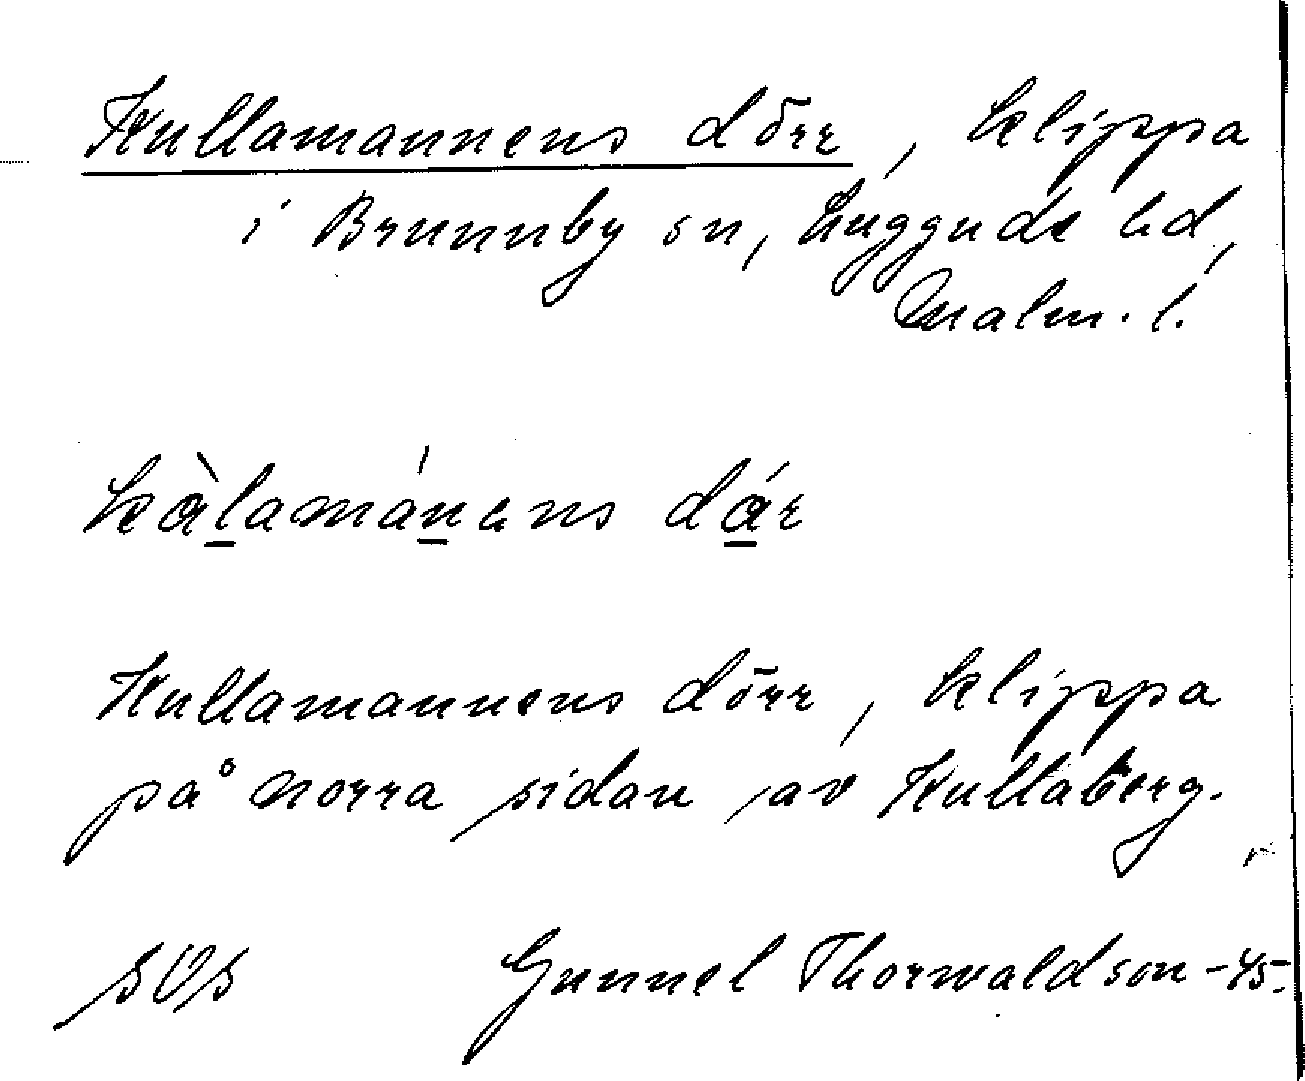 Kullamannens dörr, klippa
i Brunnby sn, Luggude hd,
Malm. l.
kàlamánens dár
Kullamannens dörr, klippa
på norra sidan av Kullaberg.
SOS Gunnel Thorwaldson -45.